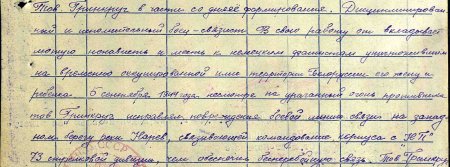 Тов Гринкруг в части со дня её формирования. Дисциплинирован-
ный и исполнительный боец-связист. В свою работу он вкладывает
лютую ненависть и месть к немецким фашистам уничтожившим
на временно оккупированной ими территории Белоруссии его жену и
ребенка. 6 сентября 1944 года, несмотря на ураганный огонь противника
тов Гринкруг исправлял повреждения боевой линии связи на запад-
ном берегу реки Нарев, связывающей командование корпуса с "НП"
73 стрелковой дивизии, чем обеспечил бесперебойную связь. Тов Гринкруг